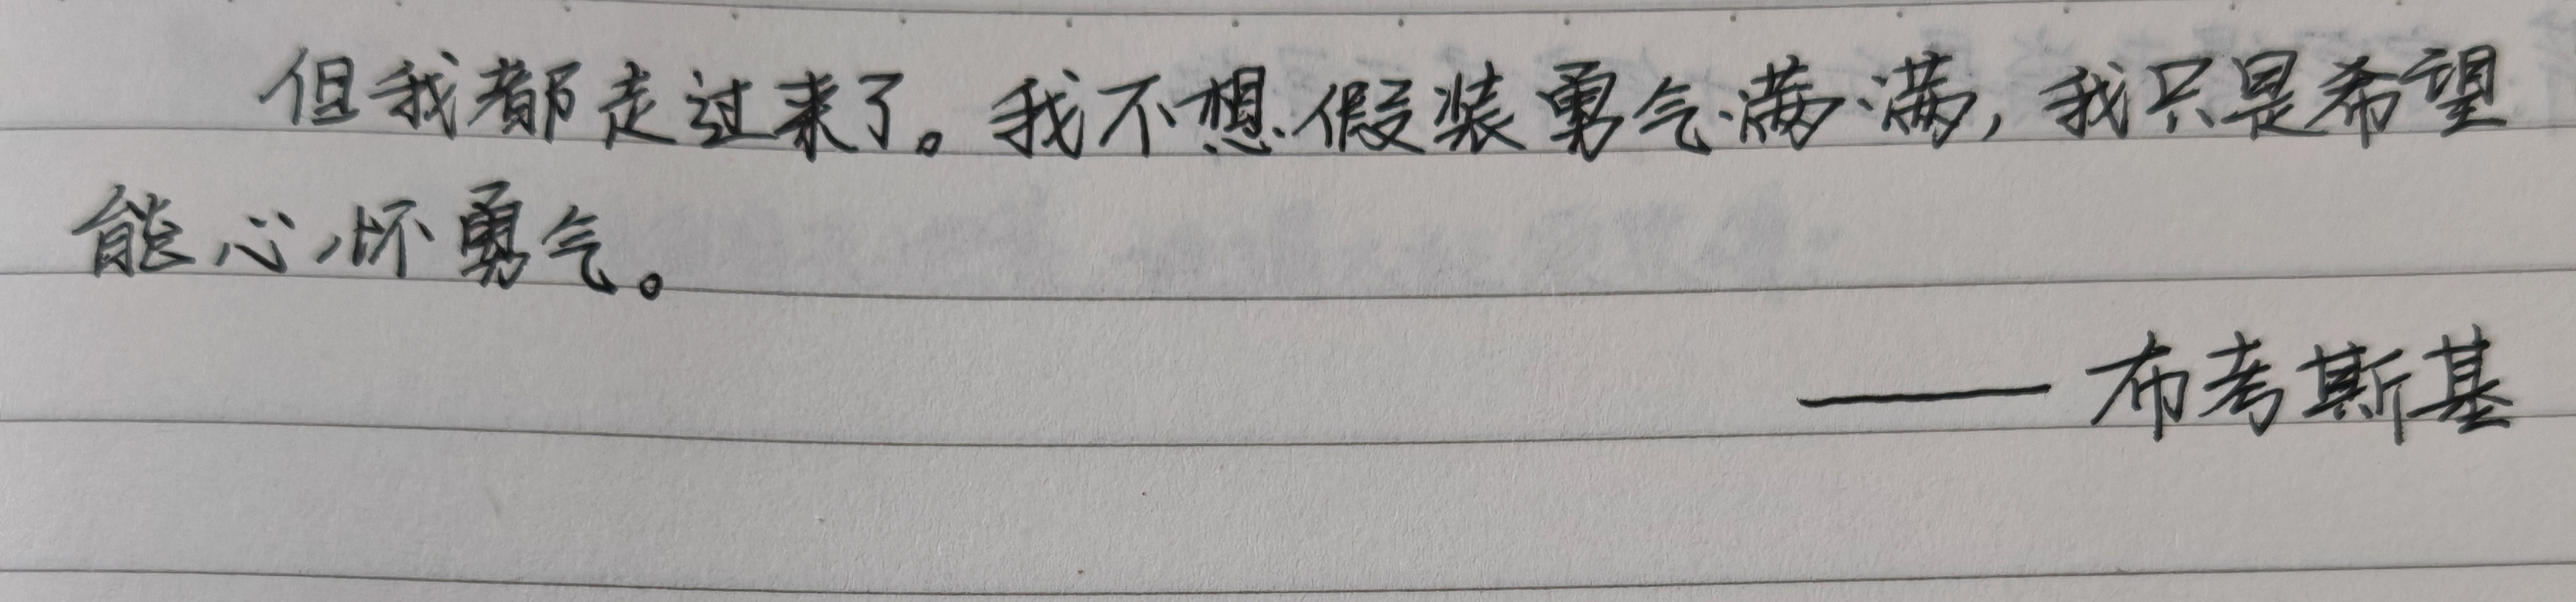 但我都走过来了。我不想假装勇气满满，我只是希望
能心怀勇气。
——布考斯基